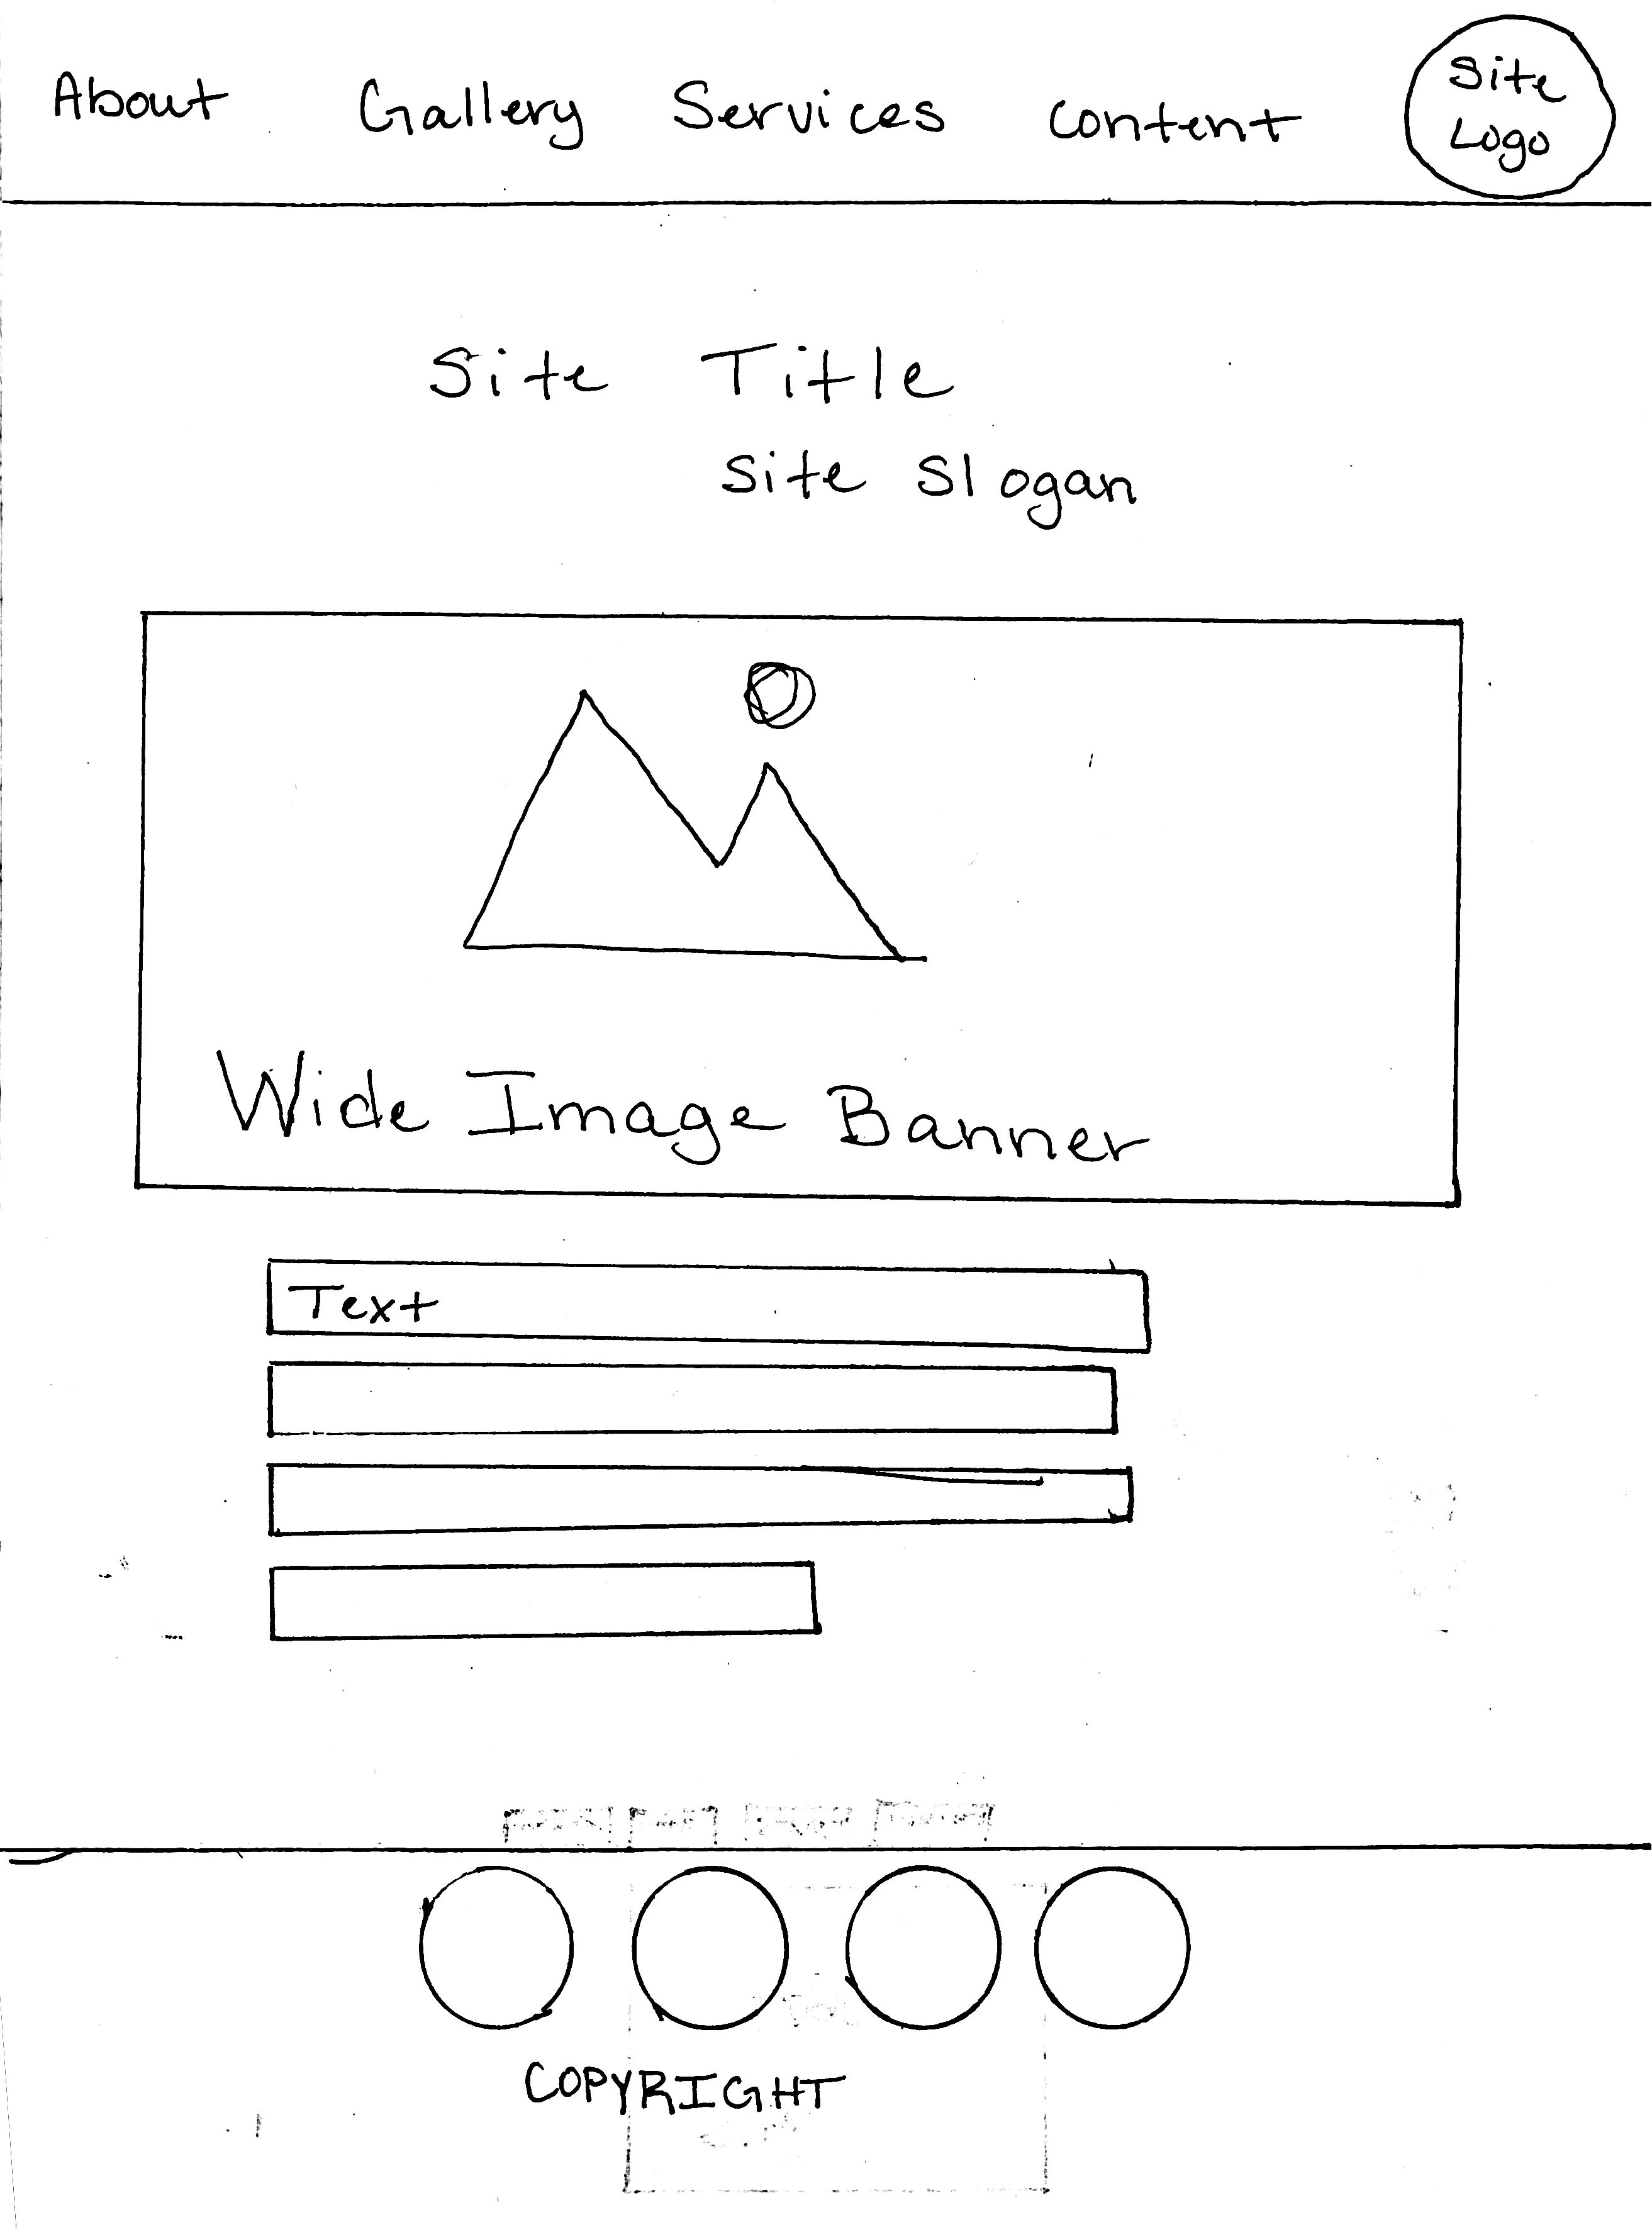 About Gallery Services content
Site
Logo
Site Title
Site Slogan
Wide Image Banner
Text
COPYRIGHT